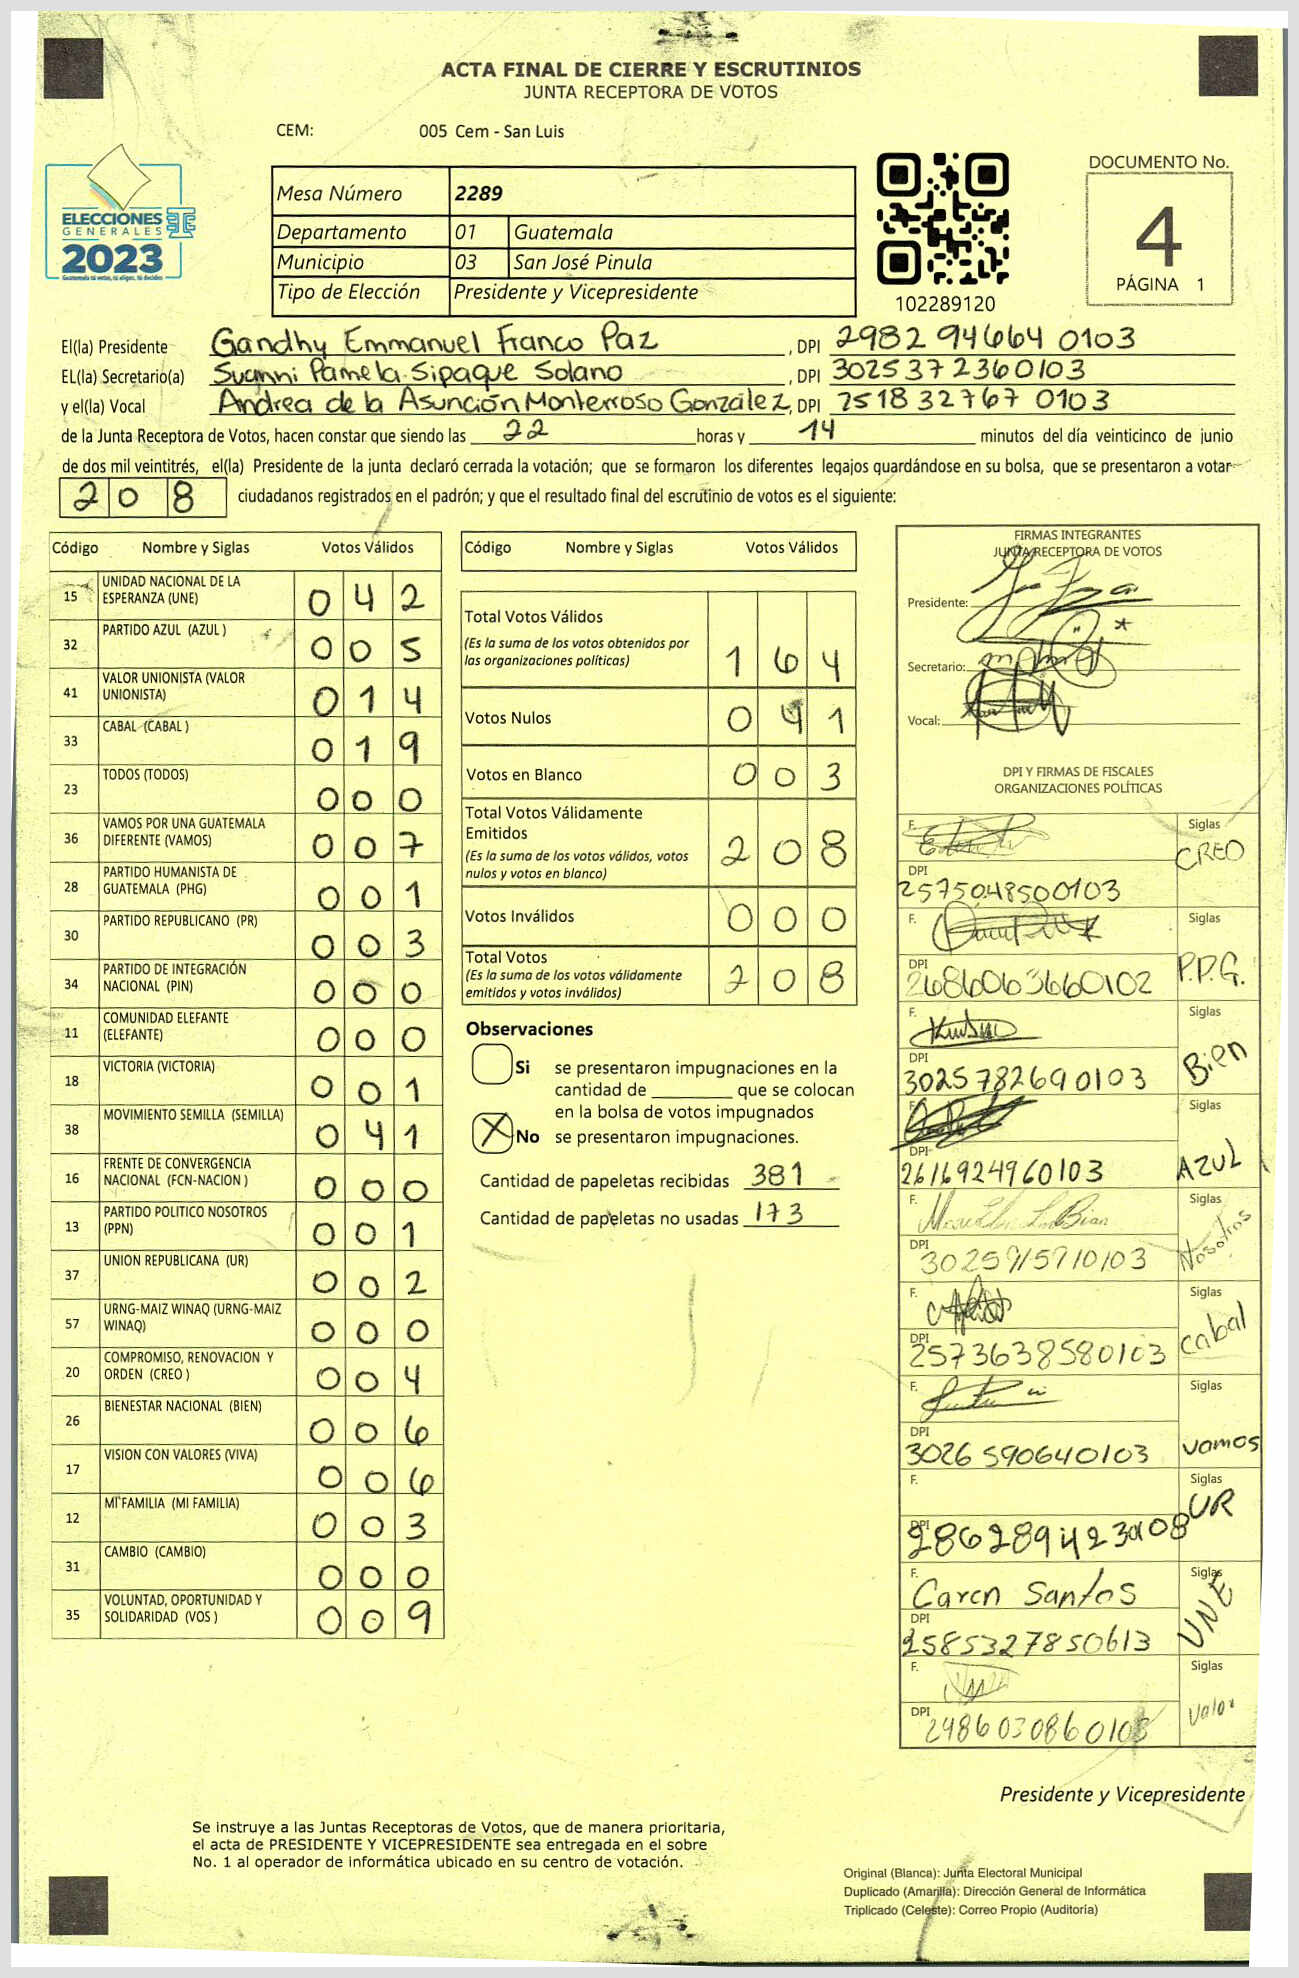 ACTA FINAL DE CIERRE Y ESCRUTINIOS
JUNTA RECEPTORA DE VOTOS
CEM: 005 Cem - San Luis
ELECCIONES
GENERALES
2023
Guatemala tú votas, tú eliges, tú decides
Mesa Número 2289
Departamento 01 Guatemala
Municipio 03 San José Pinula
Tipo de Elección Presidente y Vicepresidente
102289120
DOCUMENTO No.
4
PÁGINA 1
El(la) Presidente Gandhy Emmanuel Franco Paz, DPI 2982 94664 0103
EL(la) Secretario(a) Pamela Sipaque Solano, DPI 3025372360103
y el(la) Vocal Andrea de la Asunción Monterroso González, DPI 251832767 0103
de la Junta Receptora de Votos, hacen constar que siendo las 22 horas y 14 minutos del día veinticinco de junio
de dos mil veintitrés, el(la) Presidente de la junta declaró cerrada la votación; que se formaron los diferentes legajos guardándose en su bolsa, que se presentaron a votar
208 ciudadanos registrados en el padrón; y que el resultado final del escrutinio de votos es el siguiente:
Código Nombre y Siglas Votos Válidos
15 UNIDAD NACIONAL DE LA ESPERANZA (UNE) 042
32 PARTIDO AZUL (AZUL ) 005
41 VALOR UNIONISTA (VALOR UNIONISTA) 014
33 CABAL (CABAL ) 019
23 TODOS (TODOS) 000
36 VAMOS POR UNA GUATEMALA DIFERENTE (VAMOS) 007
28 PARTIDO HUMANISTA DE GUATEMALA (PHG) 001
30 PARTIDO REPUBLICANO (PR) 003
34 PARTIDO DE INTEGRACIÓN NACIONAL (PIN) 000
11 COMUNIDAD ELEFANTE (ELEFANTE) 000
18 VICTORIA (VICTORIA) 001
38 MOVIMIENTO SEMILLA (SEMILLA) 041
16 FRENTE DE CONVERGENCIA NACIONAL (FCN-NACION ) 000
13 PARTIDO POLITICO NOSOTROS (PPN) 001
37 UNION REPUBLICANA (UR) 002
57 URNG-MAIZ WINAQ (URNG-MAIZ WINAQ) 000
20 COMPROMISO, RENOVACION Y ORDEN (CREO ) 004
26 BIENESTAR NACIONAL (BIEN) 006
17 VISION CON VALORES (VIVA) 006
12 MI FAMILIA (MI FAMILIA) 003
31 CAMBIO (CAMBIO) 000
35 VOLUNTAD, OPORTUNIDAD Y SOLIDARIDAD (VOS ) 009
Código Nombre y Siglas Votos Válidos
Total Votos Válidos
(Es la suma de los votos obtenidos por
las organizaciones políticas) 164
Votos Nulos 041
Votos en Blanco 003
Total Votos Válidamente
Emitidos
(Es la suma de los votos válidos, votos
nulos y votos en blanco) 208
Votos Inválidos 000
Total Votos
(Es la suma de los votos válidamente
emitidos y votos inválidos) 208
Observaciones
Si se presentaron impugnaciones en la
cantidad de ________ que se colocan
en la bolsa de votos impugnados
X No se presentaron impugnaciones.
Cantidad de papeletas recibidas 381
Cantidad de papeletas no usadas 173
FIRMAS INTEGRANTES
JUNTA RECEPTORA DE VOTOS
Presidente:
Secretario:
Vocal:
DPI Y FIRMAS DE FISCALES
ORGANIZACIONES POLÍTICAS
F. Siglas CREO
DPI 2575048500103
F. Siglas P.P.G.
DPI 2686063660102
F. Siglas Bien
DPI 3025782690103
F. Siglas AZUL
DPI 2616924960103
F. Siglas Nosotros
DPI 3025915910103
F. Siglas Cabal
DPI 2573638580103
F. Siglas Vamos
DPI 3026590640103
F. Siglas UR
DPI
F. Caren Santos Siglas UNE
DPI 2585327850613
F. Siglas Valor
DPI 2486030860103
Presidente y Vicepresidente
Se instruye a las Juntas Receptoras de Votos, que de manera prioritaria,
el acta de PRESIDENTE Y VICEPRESIDENTE sea entregada en el sobre
No. 1 al operador de informática ubicado en su centro de votación.
Original (Blanca): Junta Electoral Municipal
Duplicado (Amarilla): Dirección General de Informática
Triplicado (Celeste): Correo Propio (Auditoría)